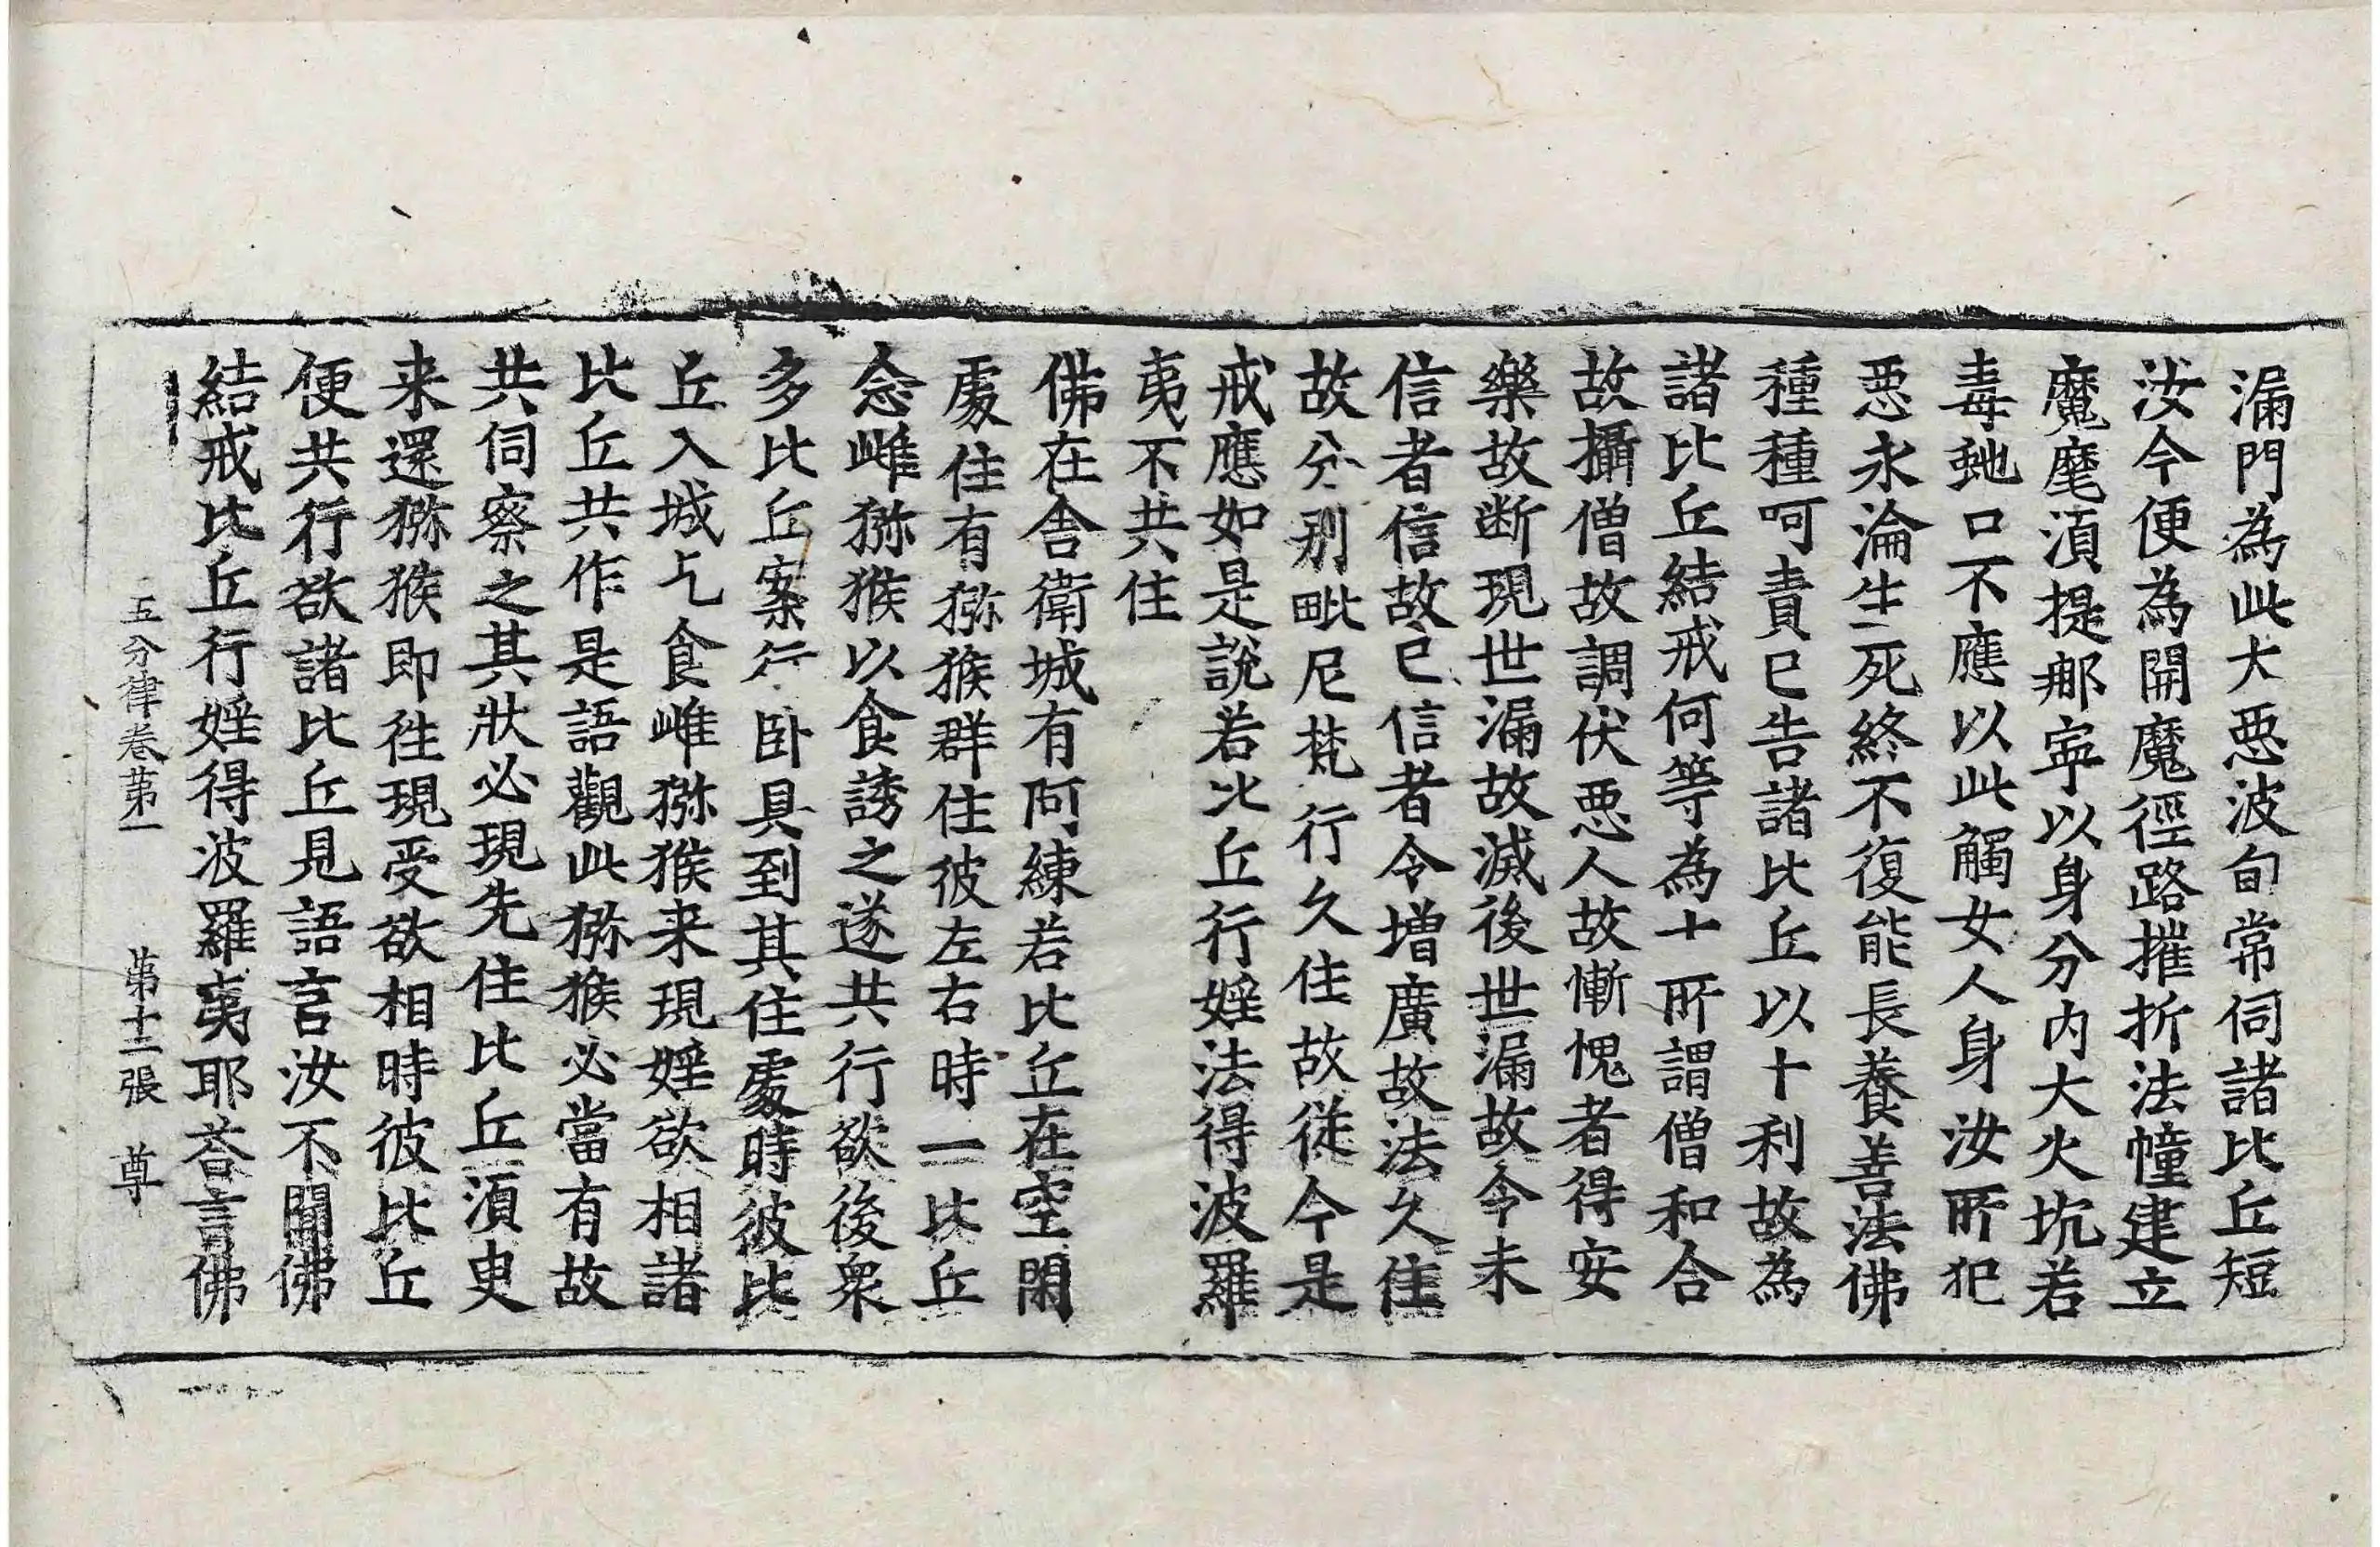 漏門為此大惡波旬常伺諸比丘短
汝今便為開魔徑路摧折法幢建立
魔麾湏提郍寧以身分内大火坑若
毒虵口不應以此觸女人身汝所犯
惡永淪生死終不復能長養善法佛
種種呵責已告諸比丘以十利故為
諸比丘結戒何等為十所謂僧和合
故攝僧故調伏惡人故慚愧者得安
樂故断現世漏故滅後世漏故令未
信者信故已信者令增廣故法久住
故分别毗尼梵行久住故從今是
戒應如是說若比丘行婬法得波羅
夷不共住
佛在舍衛城有阿練若比丘在空閑
處住有猕猴群住彼左右時一比丘
念雌猕猴以食誘之遂共行欲後衆
多比丘案行卧具到其住處時彼比
丘入城乞食雌猕猴来現婬欲相諸
比丘共作是語觀此猕猴必當有故
共伺察之其狀必現先住比丘湏臾
来還猕猴即徃現受欲相時彼比丘
便共行欲諸比丘見語言汝不聞佛
結戒比丘行婬得波羅夷耶荅言佛
五分律卷苐一　苐十二張　尊